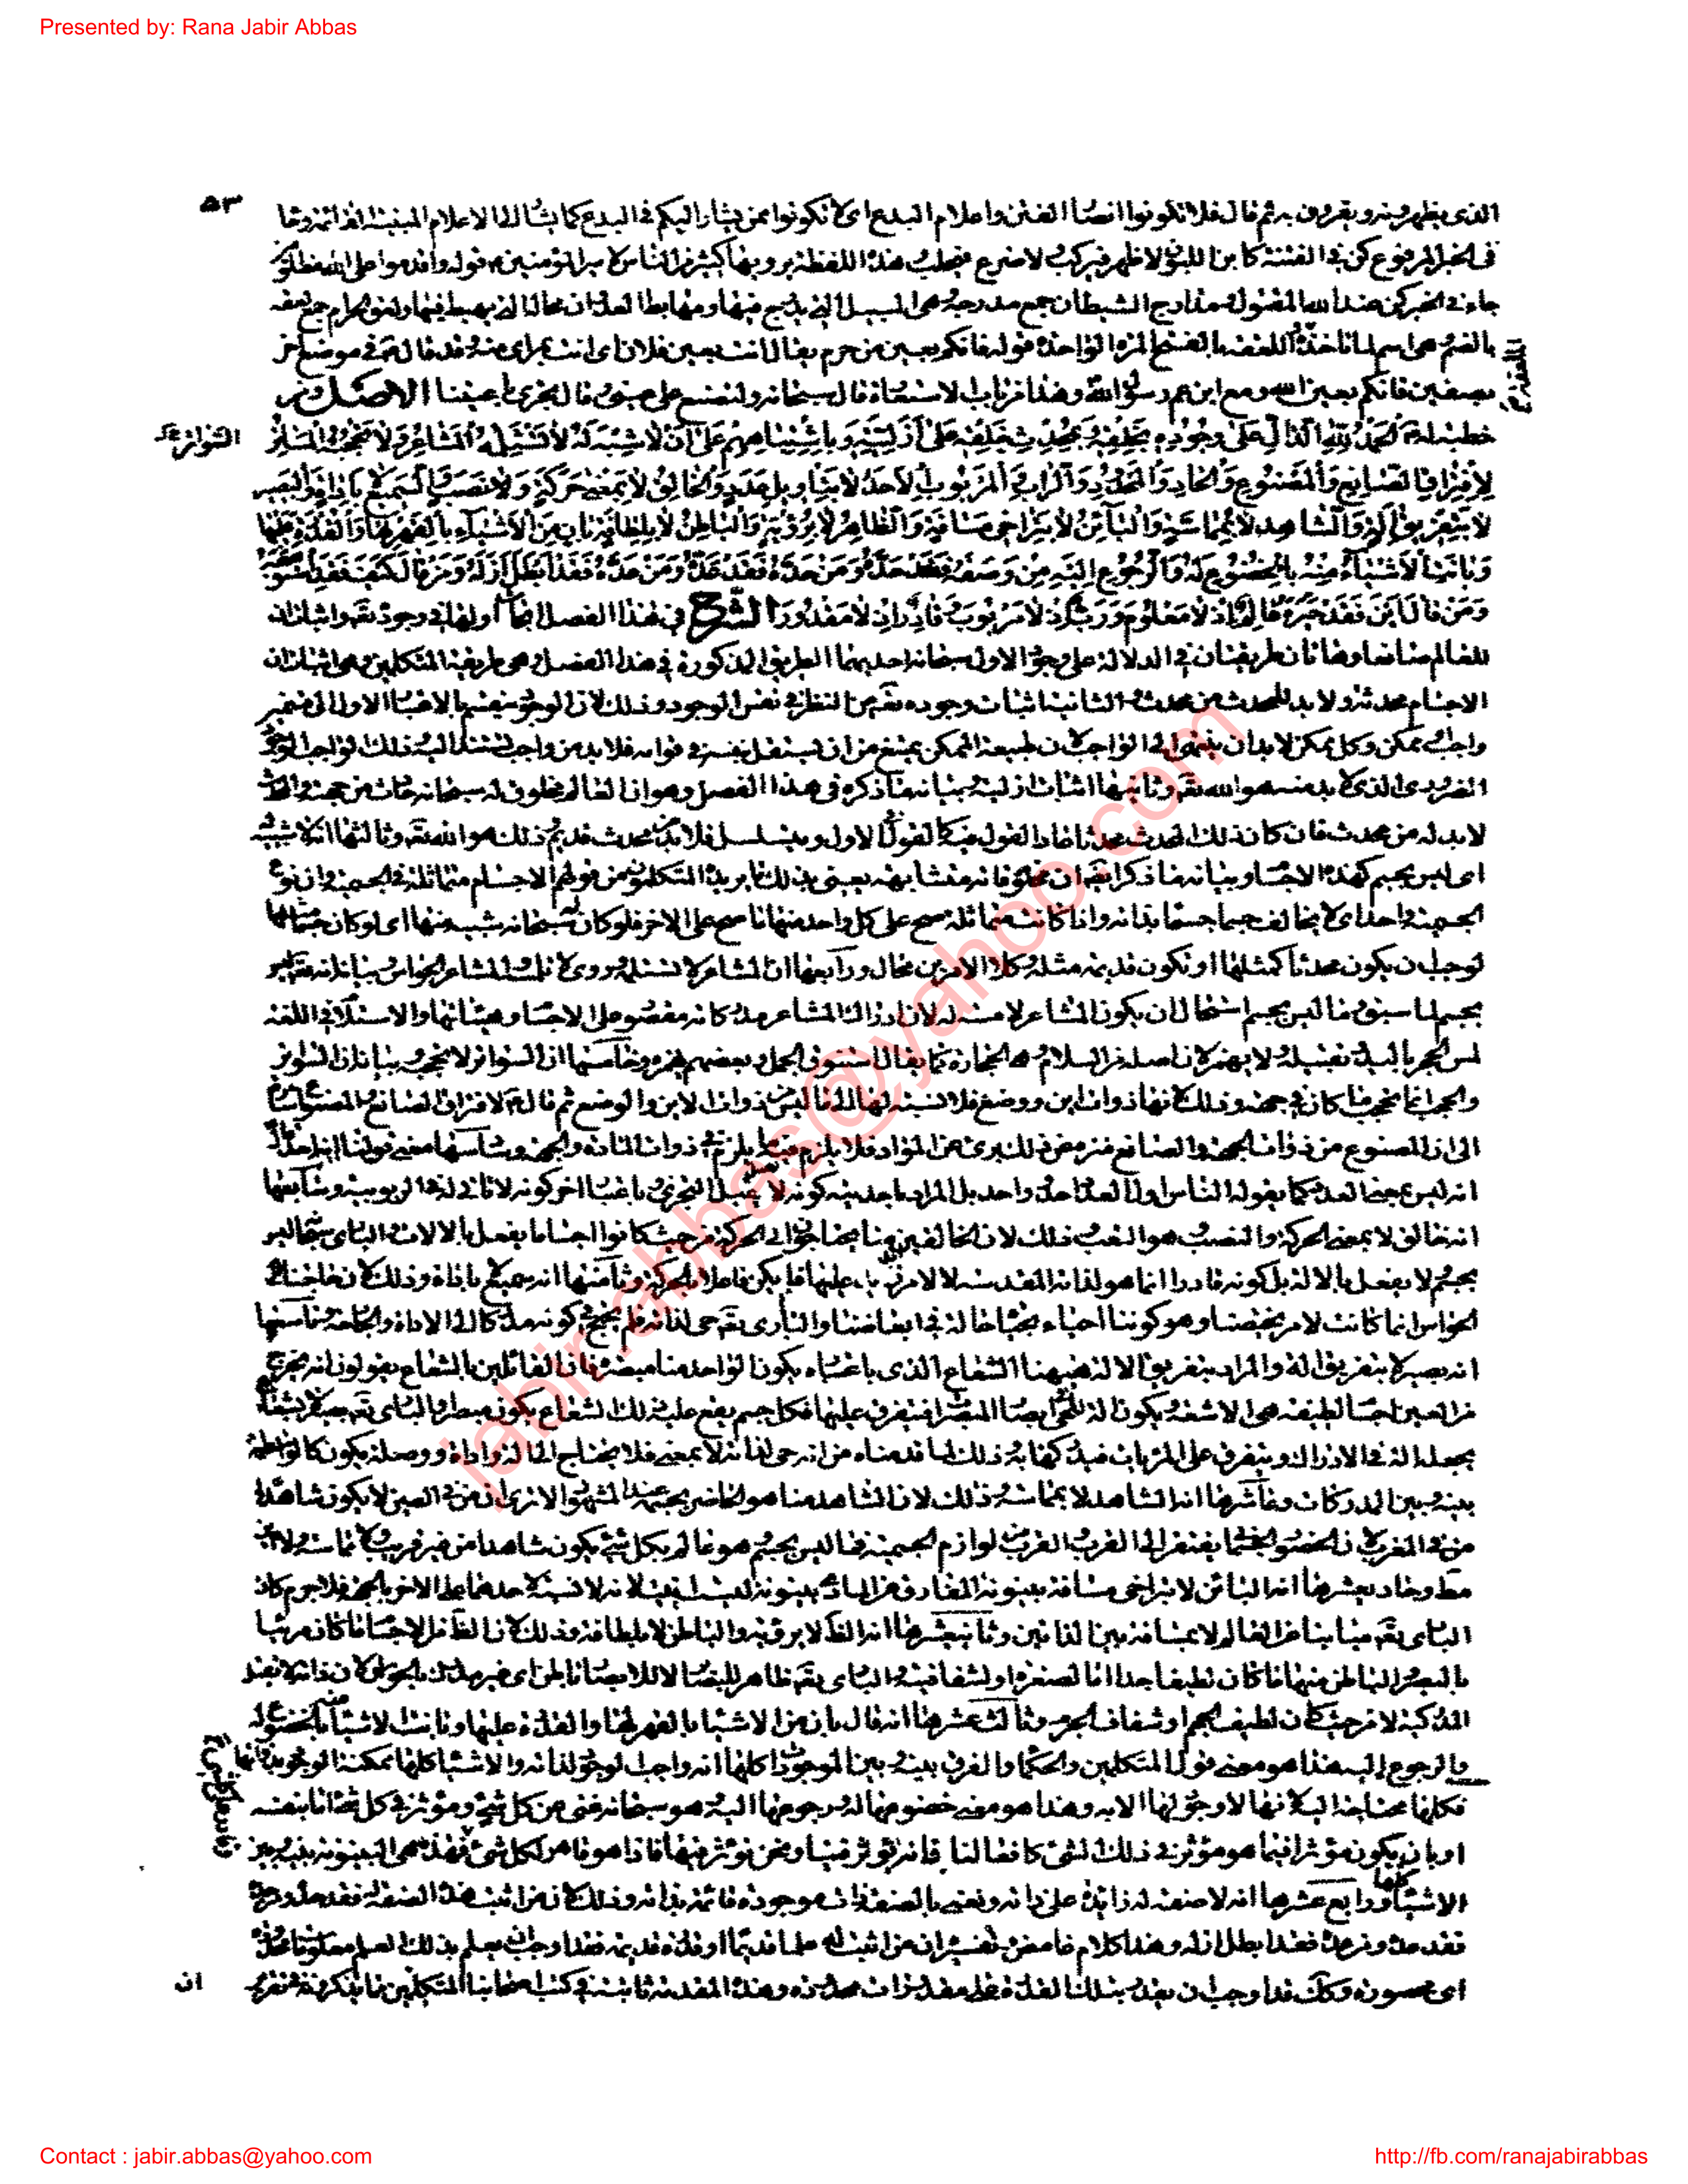 Presented by: Rana Jabir Abbas
٥٣
الذى يظهرونه ويقرون به ثم قال فلا تكونوا انصاب الفتن واعلام البدع اى لا تكونوا ممن يشار اليكم فى البدع كما يشار الى الاعلام المبنية القائمة وجا
فى الخبر المرفوع كن فى الفتنة كابن اللبون لا ظهر فيركب لا ضرع فيحلب هذه اللفظة يرويها كثير من الناس لامير المؤمنين قوله واقدموا على الله مظلومين
جاء فى الخبر كن عبد الله المقتول مدارج الشيطان جمع مدرجة وهى السبيل التى يدرج فيها ومهابط العدوان محاله التى يهبط فيها ولعق الحرام جمع لعقة
بالضم وهى اسم لما تاخذه الملعقة واللعقة بالفتح المرة الواحدة قوله فانكم بعين من حرم يقال انت بعين فلان اى انت بمراى منه وقد قال فى موضع اخر
بصفين فانكم بعين الله ومع ابن عم رسول الله وهذا من باب الاستعارة قال سبحانه ولتصنع على عينى وقال تجرى باعيننا الاصل ومن
خطبة له الحمد لله الدال على وجوده بخلقه وبمحدث خلقه على ازليته وباشتباههم على ان لا شبه له لا تستلمه المشاعر ولا تحجبه الساتر
السواتر
لافتراق الصانع والمصنوع والحاد والمحدود والرب والمربوب الاحد لا بتاويل عدد والخالق لا بمعنى حركة ولا نصب والسميع لا باداة والبصير
لا بتفريق الة والشاهد لا بمماسة والبائن لا بتراخى مسافة والظاهر لا برؤية والباطن لا بلطافة بان من الاشياء بالقهر لها والقدرة عليها
وبانت الاشياء منه بالخضوع له والرجوع اليه من وصفه فقد حده ومن حده فقد عده ومن عده فقد ابطل ازله ومن قال كيف فقد استوصفه
ومن قال اين فقد حيزه عالم اذ لا معلوم ورب اذ لا مربوب قادر اذ لا مقدور الشرح فى هذا الفصل ابحاث اولها فى وجوده تعالى واثبات ان
للعالم صانعا وهاتان طريقتان فى الدلالة على وجوده الاول سبحانه احديهما الطريقة المذكورة فى هذا الفصل وهى طريقة المتكلمين وهى اثبات ان
الاجسام محدثة ولا بد للمحدث من محدث والثانية اثبات وجوده تعالى من النظر فى نفس الوجود وذلك لان الوجود ينقسم بالاعتبار الاول الى قسمين
واجب وممكن وكل ممكن لا بد ان ينتهى الى الواجب لان طبيعة الممكن يمتنع من ان يستقل بنفسه فى قوامه فلا بد من واجب يستند اليه وذلك الواجب الوجود
الضرورى الذى لا بد منه هو الله تعالى وثانيها اثبات ازليته وبيانه ما ذكره فى هذا الفصل وهو ان العالم مخلوق له سبحانه حادث من جهته والمحدث
لا بد له من محدث فان كان ذلك المحدث محدثا عاد القول فيه كالقول فى الاول ويتسلسل فلا بد من محدث قديم وذلك هو الله تعالى وثالثها انه لا شبيه له
اى ليس بجسم كهذه الاجسام وبيانه ما ذكر ايضا ان مخلوقاته متشابهة يعنى بذلك ما يريده المتكلمون من قولهم الاجسام متماثلة فى الجسمية وان نوع
الجسمية واحد اى لا يخالف جسم جسما بذاته واذا كانت متماثلة صح على كل واحد منها ما صح على الاخر فلو كان سبحانه شبيه منها اى لو كان جسما مثلها
لوجب ان يكون محدثا كمثلها او تكون قديمة مثله وكلا الامرين محال ورابعها ان المشاعر لا تستلمه وروى لا تلمسه والمشاعر الحواس وبيانه انه تعالى ليس
بجسم لما سبق وما ليس بجسم استحال ان يكون المشاعر لامسة له لان ادراك المشاعر مدركاته مقصور على الاجسام وهيئاتها والاستلام فى اللغة
لمس الحجر باليد وتقبيله ولا يهمز لان اصله من السلام وهى الحجارة كما يقال استنوق الجمل وبعضهم يهمزه وخامسها ان السواتر لا تحجبه وبيانه ان السواتر
والحجب انما تحجب ما كان فى جهة وذلك لانها ذوات اين ووضع فلا نسبة لها الى ما ليس من ذوات الاين والوضع ثم قال لافتراق الصانع والمصنوع اشارة
الى ان المصنوع من ذوات الجهة والصانع منزه عن ذلك برىء عن المواد فلا يلزم فيه ما يلزم فى ذوات المادة والجهة وسادسها معنى قولنا انه احد
انه ليس بمعنى العدد كما يقوله الناس اول العدد احد وواحد بل المراد باحديته كونه لا يقبل التجزى وباعتبار اخر كونه لا ثانى له فى الربوبية وسابعها
انه خالق لا بمعنى الحركة والنصب هو التعب وذلك لان الخالقين منا يحتاجون الى الحركة من حيث كانوا اجساما يفعل بالالات والبارى سبحانه ليس
بجسم ولا يفعل بالالة بل كونه قادرا انما هو لذاته المقدسة لا لامر زائد عليها فلم يكن فاعلا بالحركة وثامنها انه سميع لا باداة وذلك لان حاجتنا الى
الحواس انما كانت لامر يخصنا وهو كوننا احياء بحياة حالة فى ابعاضنا والبارى تعالى حى لذاته فلم يحتج فى كونه مدركا الى الاداة والجارحة وتاسعها
انه بصير لا بتفريق الة والمراد بتفريق الالة هيهنا الشعاع الذى باعتباره يكون الواحد منا مبصرا فان القائلين بالشعاع يقولون انه يخرج
من العين اجسام لطيفة هى الاشعة ويكون الة للحى فى ابصار المبصرات فيتفرق عليها فكل جسم يقع عليه ذلك الشعاع يكون مبصرا والبارى تعالى بصير لا بشعاع
يجعله الة فى الادراك ويتفرق على المرئيات فيدركها به وذلك لما قدمناه من انه حى لذاته لا بمعنى فلا يحتاج الى الة واداة ووصلة يكون كالواسطة
بينه وبين المدركات وعاشرها انه الشاهد لا بمماسة وذلك لان الشاهد منا هو الحاضر بجسمه عند المشهود الا ترى ان من فى الصين لا يكون شاهدا
من فى المغرب لان الحضور الجسمانى يفتقر الى القرب والقرب من لوازم الجسمية فما ليس بجسم وهو عالم بكل شىء يكون شاهدا من غير قرب ولا مماسة ولا اين
مطلوب وحادى عشرها انه البائن لا بتراخى مسافة بينونة المفارق عن المادة بينونة ليست اينية لانه لا نسبة لاحدهما على الاخر بالجهة فلا جرم كان
البارى تعالى مباينا عن العالم لا بمسافة بين الذاتين وثانى عشرها انه الظاهر لا برؤية والباطن لا بلطافة وذلك لان الظاهر من الاجسام ما كان مرئيا
بالبصر والباطن منها ما كان لطيفا جدا اما لصغره او لشفافيته والبارى تعالى ظاهر للبصائر لا للابصار باطن اى غير مدرك بالحواس لان ذاته لا تقبل
المدركية لا من حيث كان لطيف الحجم او شفاف الجرم وثالث عشرها انه قال بان من الاشياء بالقهر لها والقدرة عليها وبانت الاشياء منه بالخضوع له
والرجوع اليه هذا هو معنى قول المتكلمين والحكماء والفرق بينه وبين الموجودات كلها انه واجب الوجود لذاته والاشياء كلها ممكنة الوجود بذواتها
فكلها محتاجة اليه لانها لا وجود لها الا به وهذا هو معنى خضوعها له ورجوعها اليه وهو سبحانه غنى عن كل شىء ومؤثر فى كل شىء اما بنفسه
او بان يكون مؤثرا فيما هو مؤثر فى ذلك الشىء كافعالنا فانه يؤثر فينا ونحن نؤثر فيها فاذا هو قاهر لكل شىء فهذه هى البينونة بينه وبين
الاشياء كلها ورابع عشرها انه لا صفة له زائدة على ذاته ونعنى بالصفة ذاتا موجودة قائمة بذاته وذلك لان من اثبت هذه الصفة له فقد حده ومن حده
فقد عده ومن عده فقد ابطل ازله وهذا كلام غامض وتفسيره ان من اثبت له علما قديما او قدرة قديمة فقد اوجب ان يعلم بذلك العلم معلومات محدودة
اى محصورة وكذلك قد اوجب ان يقدر بتلك القدرة على مقدورات محدودة وهذه المقدمة ثابتة فى كتب اصحابنا المتكلمين مما يذكرونه فى تقرير
ان
jabir.abbas@yahoo.com
Contact : jabir.abbas@yahoo.com
http://fb.com/ranajabirabbas